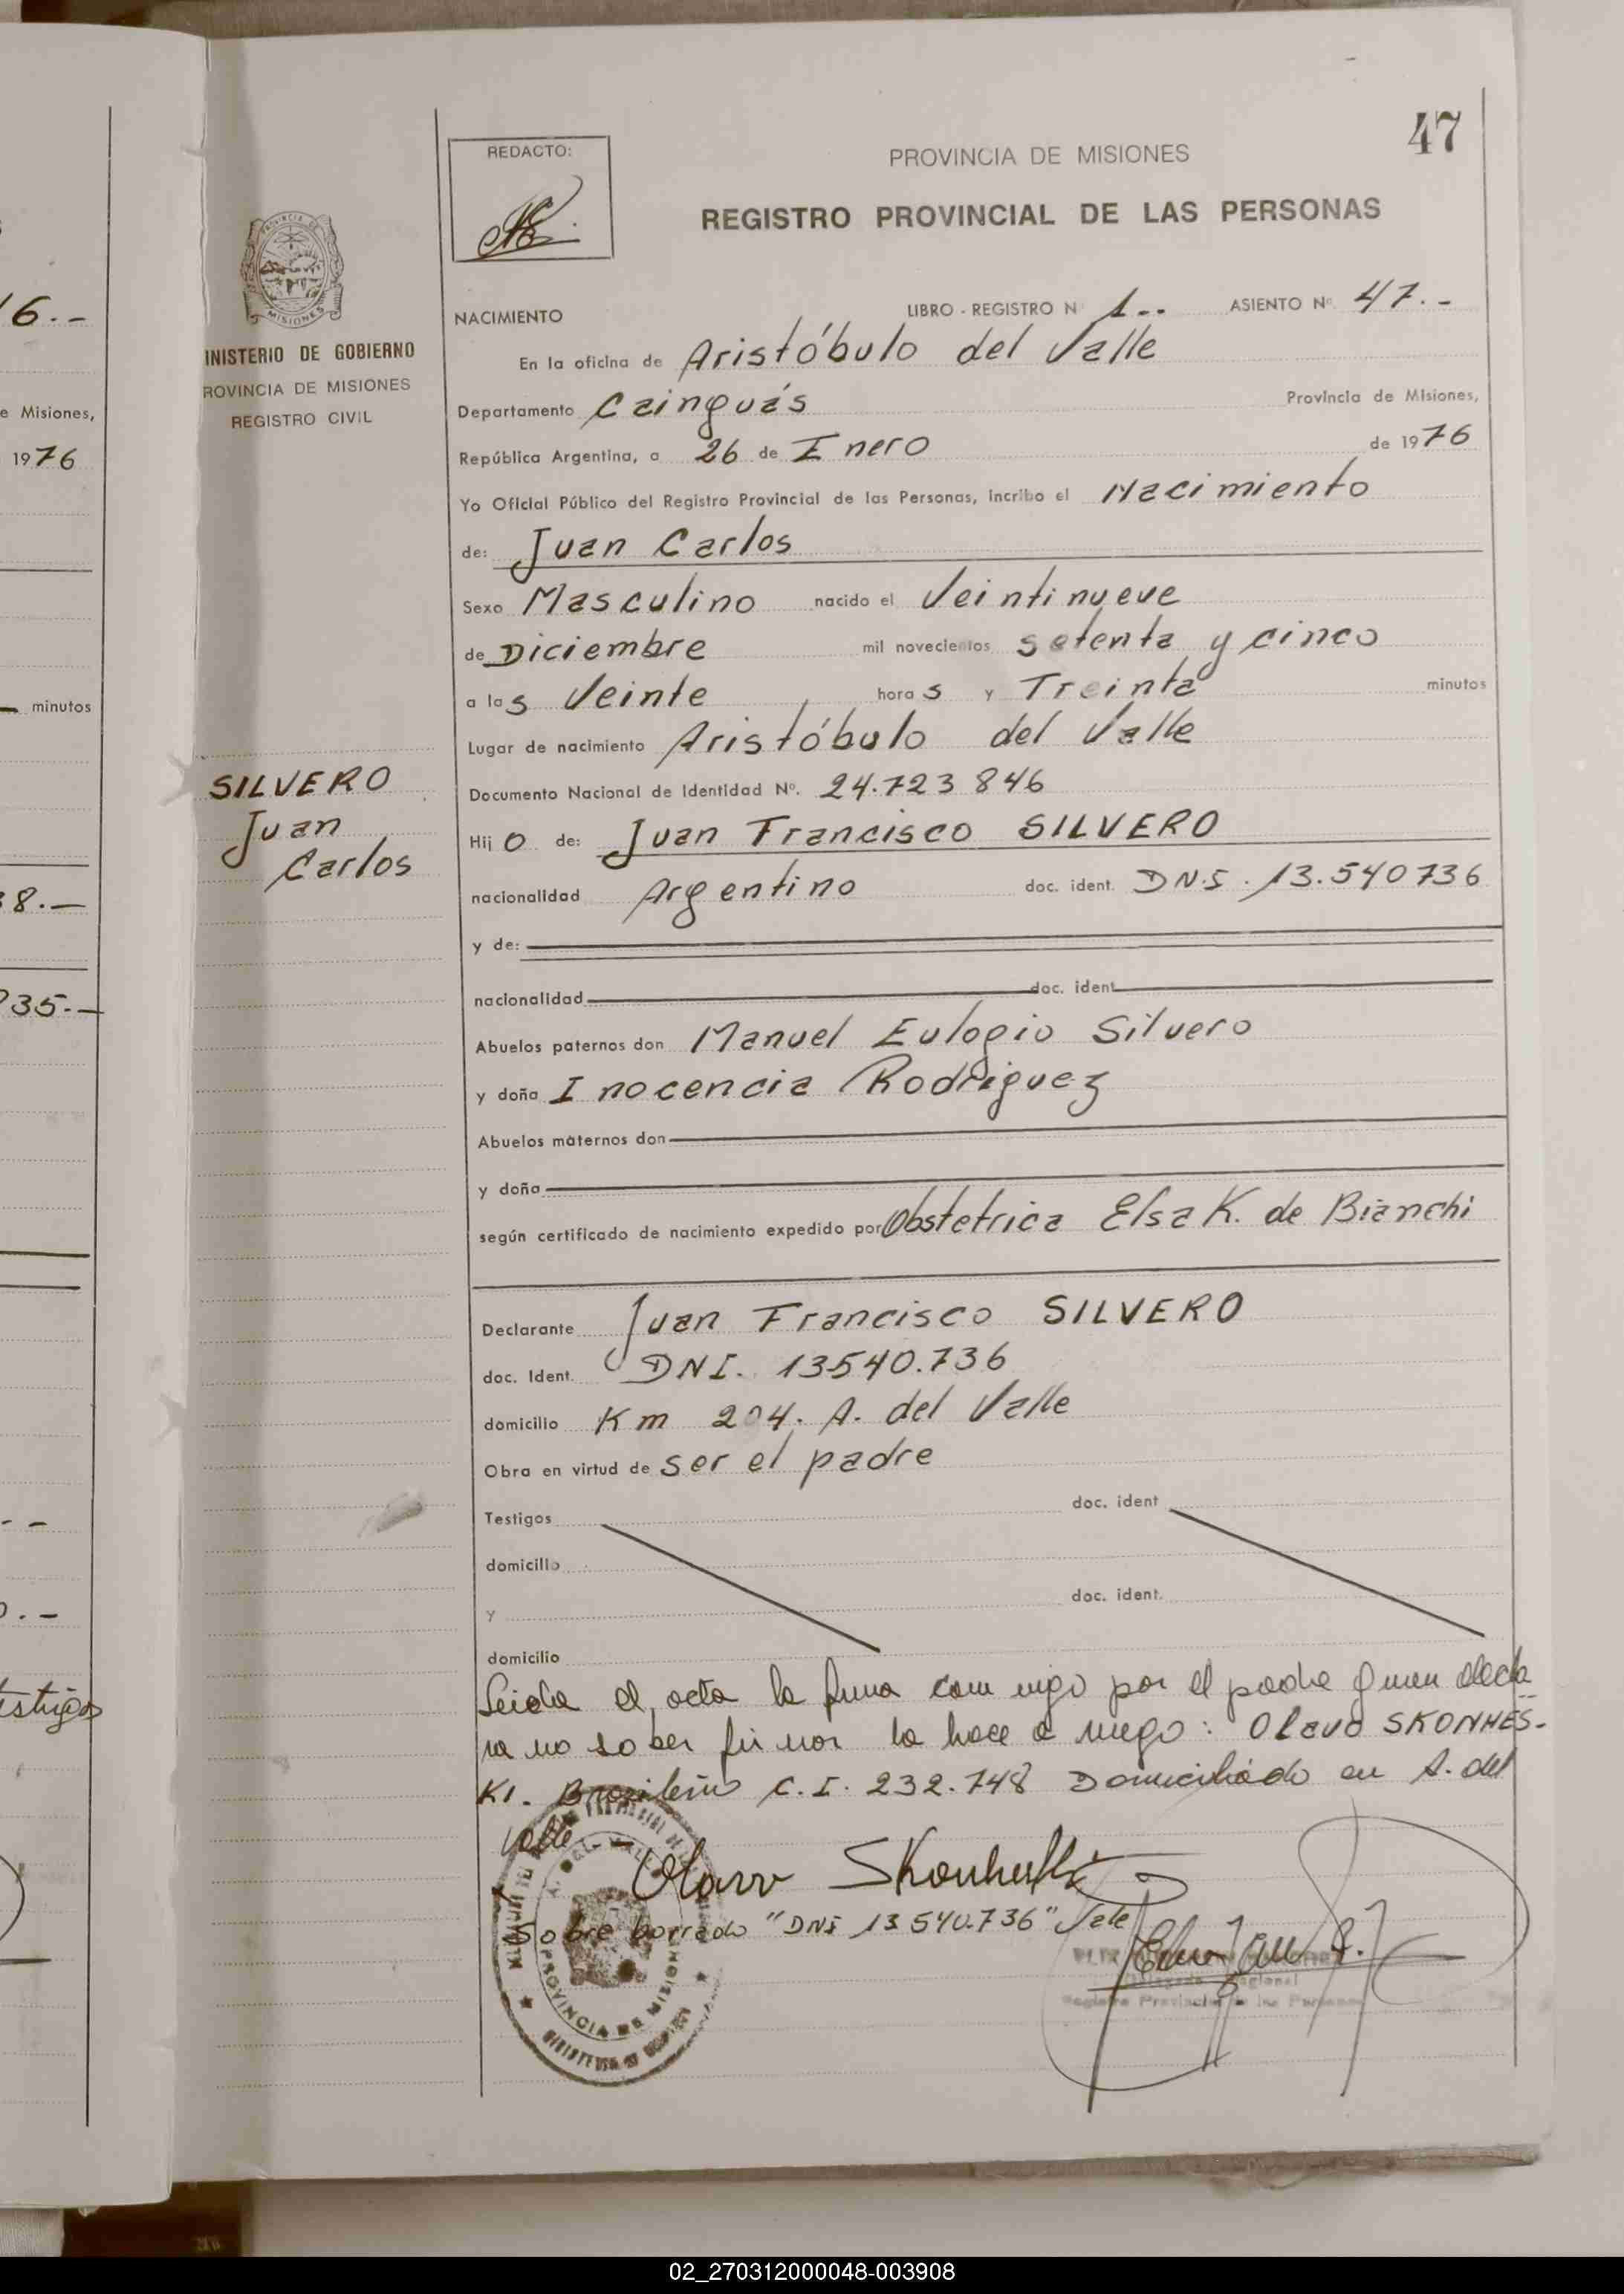 47
REDACTO:
PROVINCIA DE MISIONES
REGISTRO PROVINCIAL DE LAS PERSONAS
NACIMIENTO LIBRO - REGISTRO N 1.. ASIENTO Nº. 47.-
En la oficina de Aristóbulo del Valle
Departamento Cainguás Provincia de Misiones,
República Argentina, a 26 de Enero de 1976
Yo Oficial Público del Registro Provincial de las Personas, incribo el Nacimiento
de: Juan Carlos
Sexo Masculino nacido el Veintinueve
de Diciembre mil novecientos setenta y cinco
a las Veinte horas y Treinta minutos
Lugar de nacimiento Aristóbulo del Valle
Documento Nacional de Identidad Nº. 24.723 846
Hijo de: Juan Francisco SILVERO
nacionalidad Argentino doc. ident. DNI. 13.540736
y de:
nacionalidad doc. ident
Abuelos paternos don Manuel Eulogio Silvero
y doña Inocencia Rodriguez
Abuelos maternos don
y doña
según certificado de nacimiento expedido por Obstetrica Elsa K. de Bianchi
Declarante Juan Francisco SILVERO
doc. Ident. DNI. 13540.736
domicilio Km 204. A. del Valle
Obra en virtud de ser el padre
Testigos doc. ident
domicilio
y doc. ident.
domicilio
Leida el acta la firma con migo por el padre quien decla
ra no saber firmar lo hace a ruego: Olavo SKONHES-
KI. Brazileño C.I. 232.748 Domiciliado en A. del
Valle.-
Sobre borrado "DNI 13 540.736" Vale
MISIONES
INISTERIO DE GOBIERNO
ROVINCIA DE MISIONES
REGISTRO CIVIL
SILVERO
Juan
Carlos
6.--
e Misiones,
1976
minutos
8.-
35.-
02_270312000048-003908